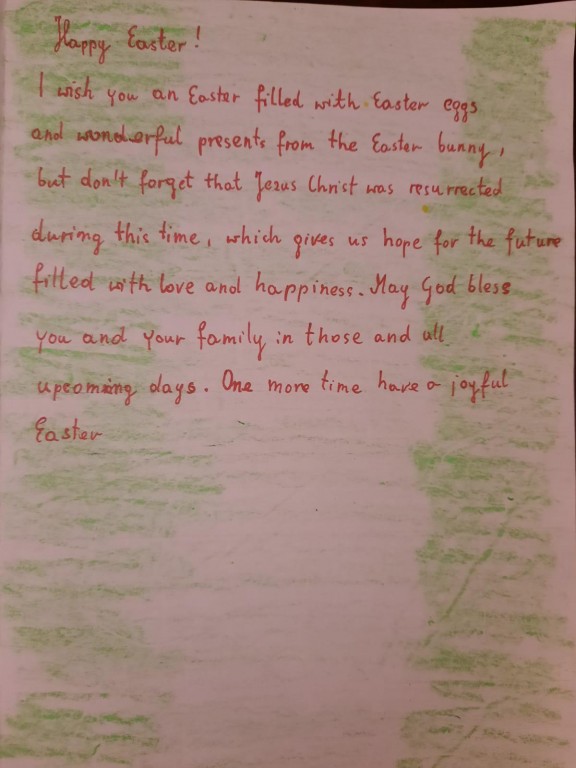 Happy Easter!
I wish you an Easter filled with Easter eggs
and wonderful presents from the Easter bunny,
but don't forget that Jezus Christ was resurrected
during this time, which gives us hope for the future
filled with love and happiness. May God bless
you and your family in those and all
upcoming days. One more time have a joyful
Easter